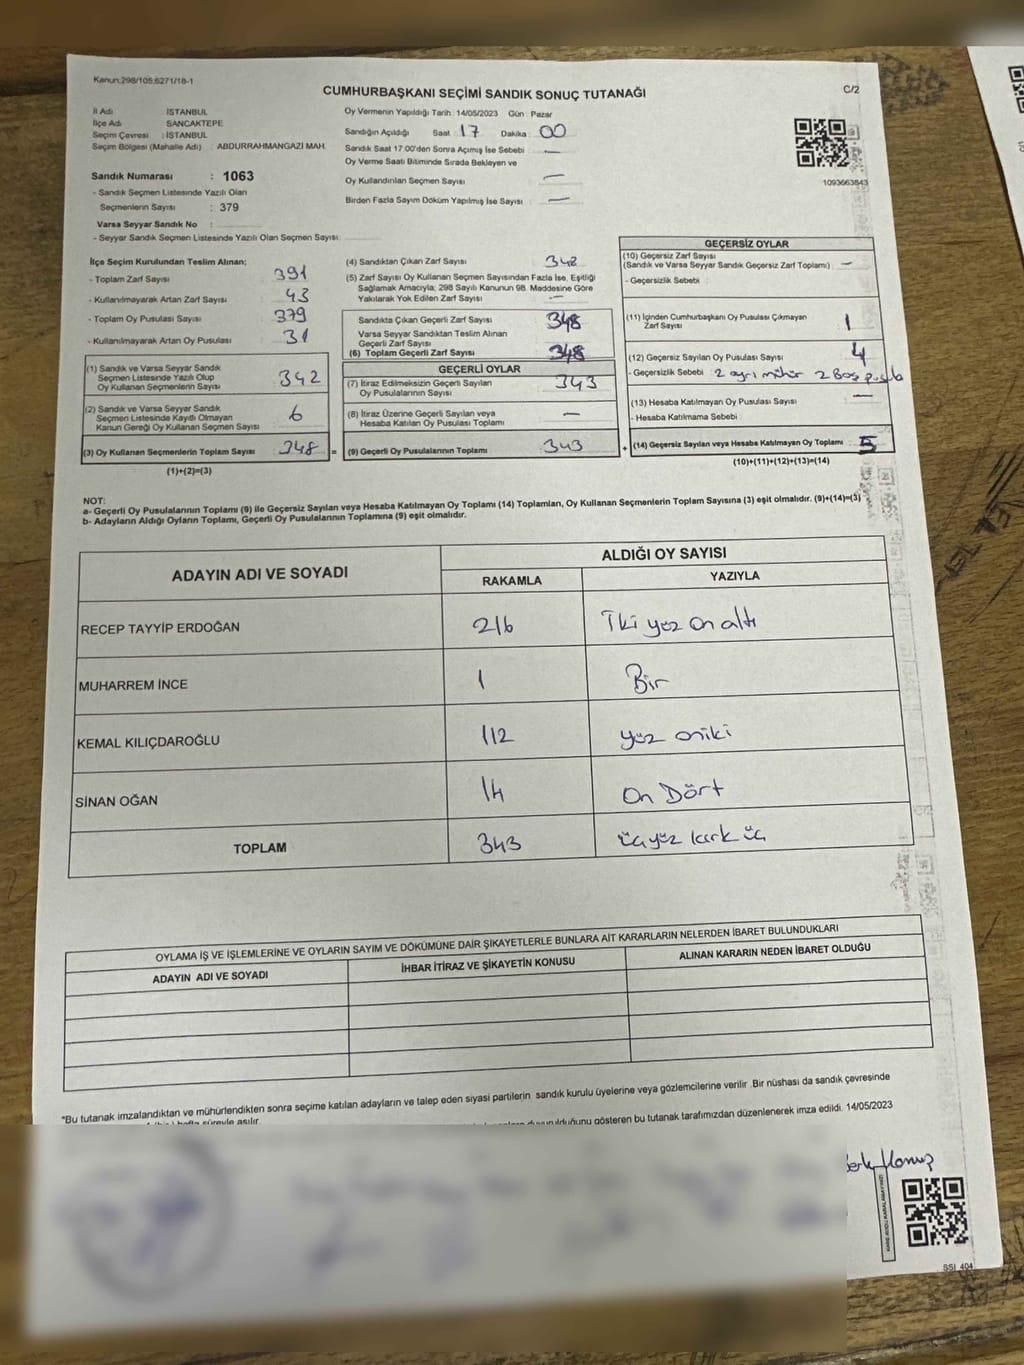 Kanun:298/105,6271/18-1
CUMHURBAŞKANI SEÇİMİ SANDIK SONUÇ TUTANAĞI
C/2
İl Adı : İSTANBUL
İlçe Adı : SANCAKTEPE
Seçim Çevresi : İSTANBUL
Seçim Bölgesi (Mahalle Adı) : ABDURRAHMANGAZİ MAH.
Sandık Numarası : 1063
- Sandık Seçmen Listesinde Yazılı Olan
Seçmenlerin Sayısı : 379
Varsa Seyyar Sandık No :
- Seyyar Sandık Seçmen Listesinde Yazılı Olan Seçmen Sayısı:
Oy Vermenin Yapıldığı Tarih : 14/05/2023 Gün : Pazar
Sandığın Açıldığı Saat 17 Dakika : 00
Sandık Saat 17.00'den Sonra Açımış İse Sebebi : —
Oy Verme Saati Bitiminde Sırada Bekleyen ve
Oy Kullandırılan Seçmen Sayısı —
Birden Fazla Sayım Döküm Yapılmış İse Sayısı : —
1093663843
İlçe Seçim Kurulundan Teslim Alınan;
- Toplam Zarf Sayısı 391
- Kullanılmayarak Artan Zarf Sayısı 43
- Toplam Oy Pusulası Sayısı 379
- Kullanılmayarak Artan Oy Pusulası 31
(1) Sandık ve Varsa Seyyar Sandık
Seçmen Listesinde Yazılı Olup
Oy Kullanan Seçmenlerin Sayısı 342
(2) Sandık ve Varsa Seyyar Sandık
Seçmen Listesinde Kayıtlı Olmayan
Kanun Gereği Oy Kullanan Seçmen Sayısı 6
(3) Oy Kullanan Seçmenlerin Toplam Sayısı 348
(1)+(2)=(3)
(4) Sandıktan Çıkan Zarf Sayısı 348
(5) Zarf Sayısı Oy Kullanan Seçmen Sayısından Fazla İse, Eşitliği
Sağlamak Amacıyla; 298 Sayılı Kanunun 98. Maddesine Göre
Yakılarak Yok Edilen Zarf Sayısı —
Sandıkta Çıkan Geçerli Zarf Sayısı 348
Varsa Seyyar Sandıktan Teslim Alınan
Geçerli Zarf Sayısı
(6) Toplam Geçerli Zarf Sayısı 348
GEÇERLİ OYLAR
(7) İtiraz Edilmeksizin Geçerli Sayılan
Oy Pusulalarının Sayısı 343
(8) İtiraz Üzerine Geçerli Sayılan veya
Hesaba Katılan Oy Pusulası Toplamı —
= (9) Geçerli Oy Pusulalarının Toplamı 343
GEÇERSİZ OYLAR
(10) Geçersiz Zarf Sayısı
(Sandık ve Varsa Seyyar Sandık Geçersiz Zarf Toplamı) —
- Geçersizlik Sebebi :
(11) İçinden Cumhurbaşkanı Oy Pusulası Çıkmayan
Zarf Sayısı 1
(12) Geçersiz Sayılan Oy Pusulası Sayısı 4
- Geçersizlik Sebebi : 2 ayrı mühür 2 Boş pusula
(13) Hesaba Katılmayan Oy Pusulası Sayısı —
- Hesaba Katılmama Sebebi :
+ (14) Geçersiz Sayılan veya Hesaba Katılmayan Oy Toplamı 5
(10)+(11)+(12)+(13)=(14)
NOT:
a- Geçerli Oy Pusulalarının Toplamı (9) ile Geçersiz Sayılan veya Hesaba Katılmayan Oy Toplamı (14) Toplamları, Oy Kullanan Seçmenlerin Toplam Sayısına (3) eşit olmalıdır. (9)+(14)=(3)
b- Adayların Aldığı Oyların Toplamı, Geçerli Oy Pusulalarının Toplamına (9) eşit olmalıdır.
ADAYIN ADI VE SOYADI
ALDIĞI OY SAYISI
RAKAMLA YAZIYLA
RECEP TAYYİP ERDOĞAN 216 İki yüz on altı
MUHARREM İNCE 1 Bir
KEMAL KILIÇDAROĞLU 112 yüz oniki
SİNAN OĞAN 14 On Dört
TOPLAM 343 üç yüz kırk üç
OYLAMA İŞ VE İŞLEMLERİNE VE OYLARIN SAYIM VE DÖKÜMÜNE DAİR ŞİKAYETLERLE BUNLARA AİT KARARLARIN NELERDEN İBARET BULUNDUKLARI
ADAYIN ADI VE SOYADI İHBAR İTİRAZ VE ŞİKAYETİN KONUSU ALINAN KARARIN NEDEN İBARET OLDUĞU
*Bu tutanak imzalandıktan ve mühürlendikten sonra seçime katılan adayların ve talep eden siyasi partilerin sandık kurulu üyelerine veya gözlemcilerine verilir .Bir nüshası da sandık çevresinde
hafta süreyle asılır.
gösteren bu tutanak tarafımızdan düzenlenerek imza edildi. 14/05/2023
SSI_404